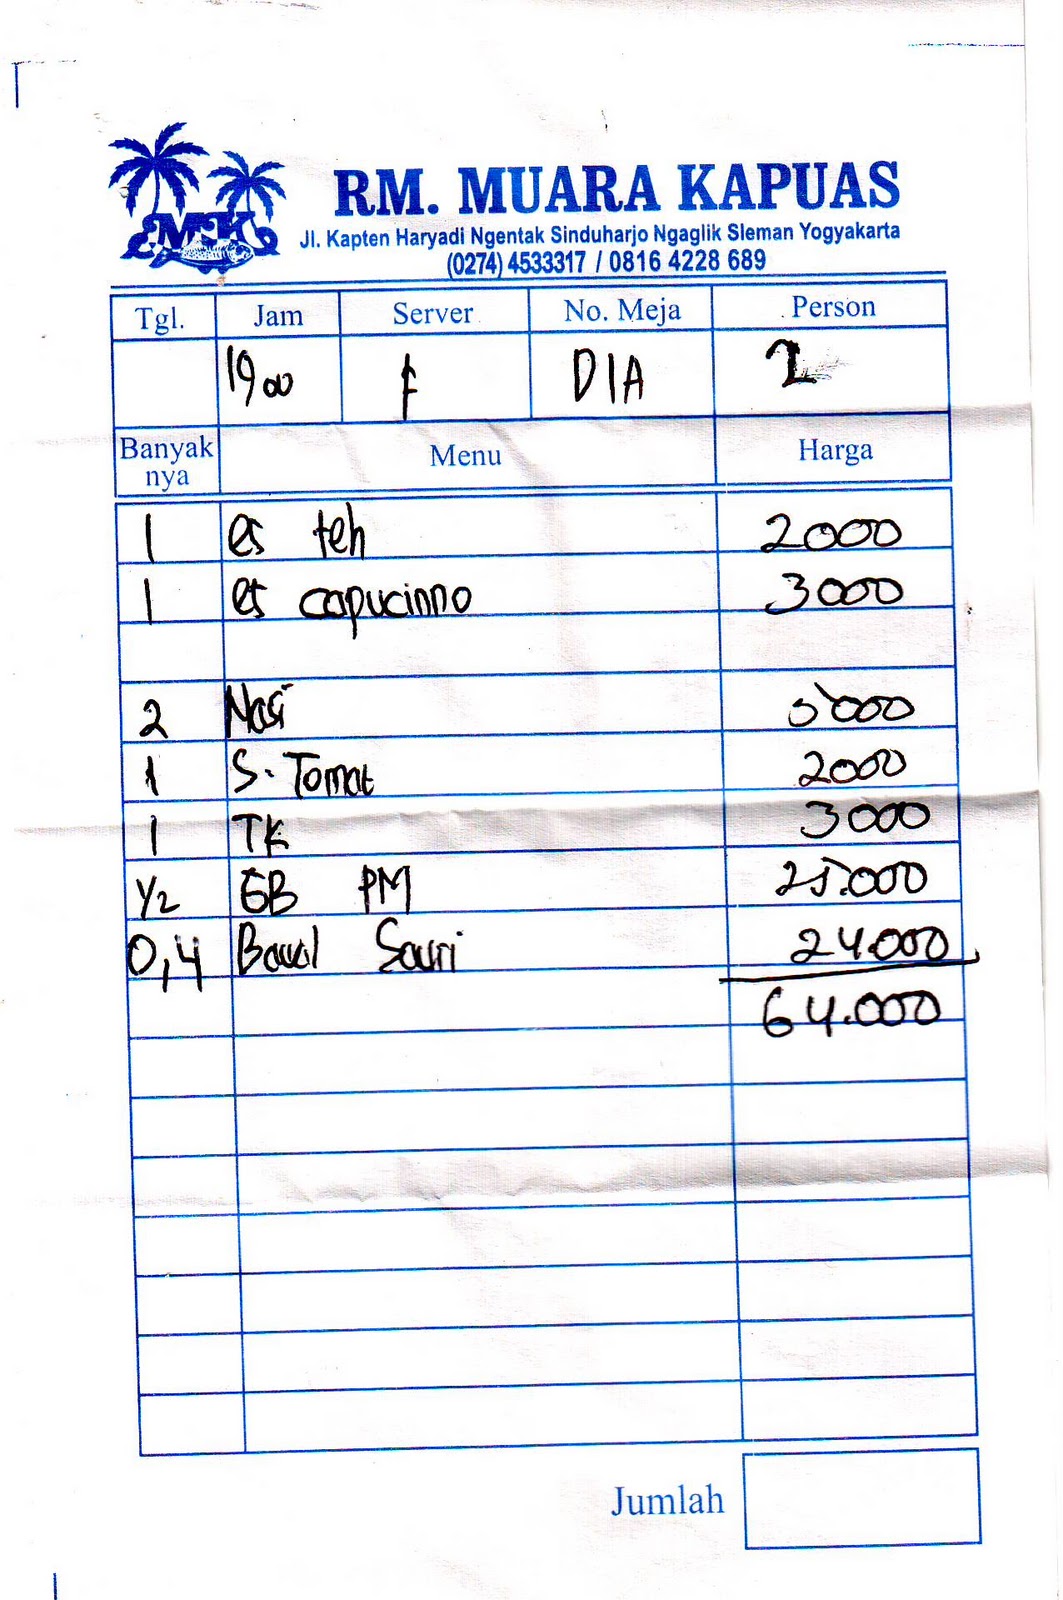 MK
RM. MUARA KAPUAS
Jl. Kapten Haryadi Ngentak Sinduharjo Ngaglik Sleman Yogyakarta
(0274) 4533317 / 0816 4228 689
Tgl. Jam Server No. Meja Person
19 00 F D1A 2
Banyak nya Menu Harga
1 es teh 2000
1 es capucinno 3000
2 Nasi 5000
1 S. Tomat 2000
1 TK 3000
1/2 GB PM 25.000
0,4 Bawal Sauri 24.000
64.000
Jumlah